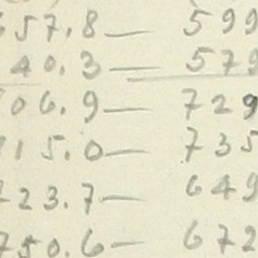 57.8 — 599
40.3 — 579
06.9 — 729
15.0 — 735
23.7 — 649
750.6 — 672